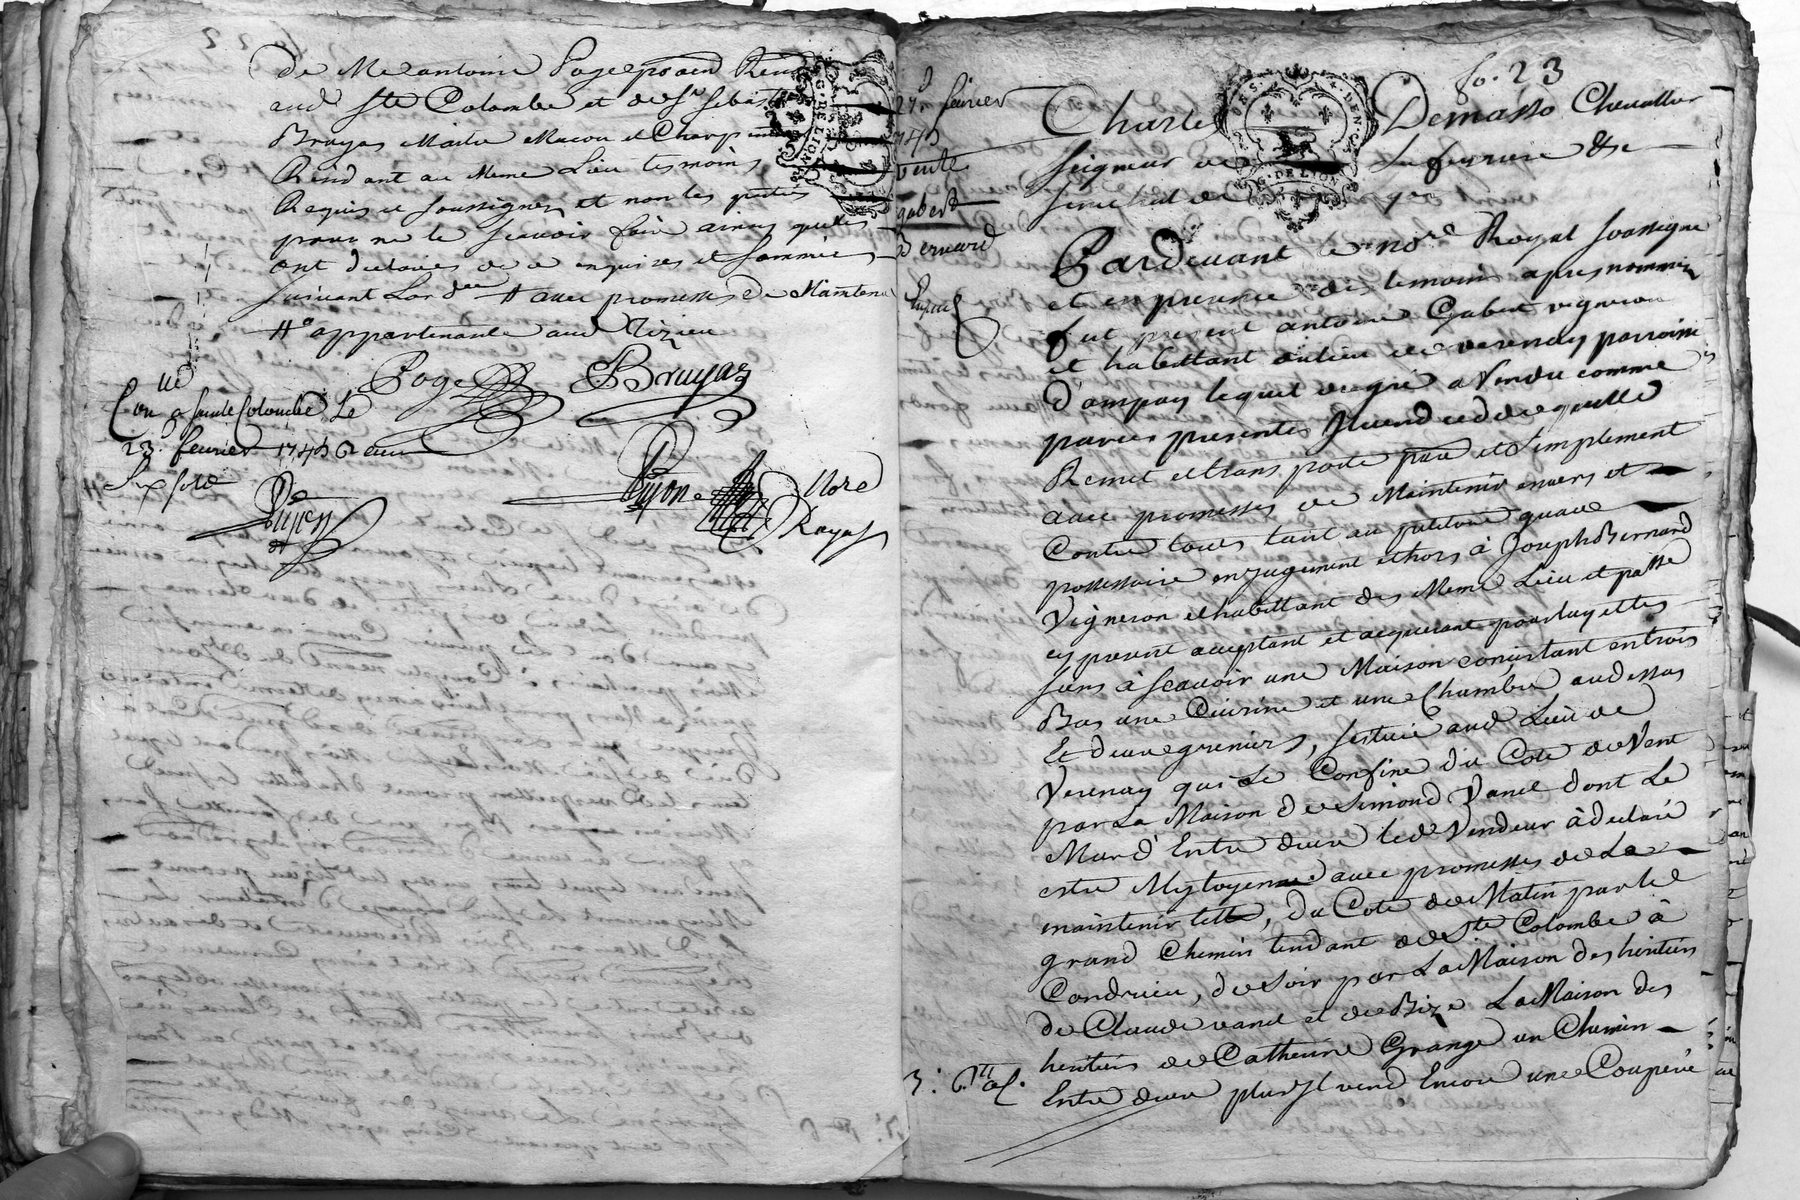 de Me antoine Poge
aud Ste Colombe et de Sr Sebas
Bruyas Maitre Macon et Charp
Residant au Meme Lieu tesmoins
Requis et soussignes et non les parties
pour ne le scavoir faire ainsy quelles
ont declarés de ce enquises et sommées
suivant Lord avec promesses de Maintenu
appartenante aud Vizieu
Poge Bruyas
Con a Sainte Colombe Le
23 fevrier 1745
Six sols
Nore
Royal
27 fevrier
vente
gabert
Bernard
fo. 23
Charles Demasso Chevallier
Seigneur de La ferriere &c
Senechal de
G. DE LION
Pardevant le nore Royal soussigne
et en presence des temoins apres nommés
fut present antoine Gabert vigneron
et habittant au lieu de Verenay parroisse
d'ampuy lequel de gré a Vendu comme
par ces presentes Il vend cede quitte
Remet et transporte pure et simplement
avec promesses de Maintenir envers et
Contre tous tant au petitoire quau
possessoire en jugement et hors à Joseph Bernard
Vigneron et habittant du Meme Lieu et passé
cy present acceptant et acquerant pour luy et les
siens à scavoir une Maison consistant en trois
Bas une Cuisine et une Chambre au dessus
Et deux greniers, scituée aud Lieu de
Verenay qui se Confine du Cote de Vent
par La Maison de Simond Vanel dont Le
Mur d'Entre deux led Vendeur à declaré
estre Mytoyenne avec promesses de La
maintenir telle, du Cote de Matin par le
grand Chemin tendant de Ste Colombe à
Condrieu, de soir par La Maison des heritiers
de Claude vanel et de Bize La Maison des
heritiers de Catherine Grange un Chemin
Entre deux plus Il vend Encore une Coupée